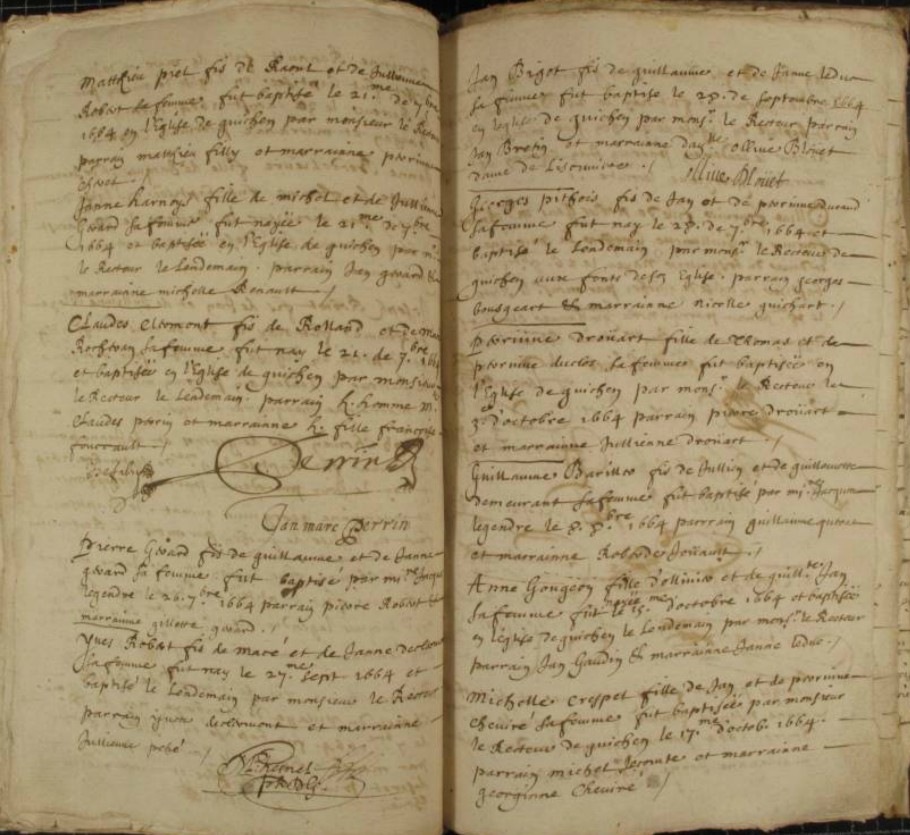 Matthieu piel fis de Raoul et de Jullienne
Robert sa femme fut baptisé le 21.me de 7bre
1664 en l'Eglise de guichen par monsieur le Recteur
parrain matthieu filly et marrainne perrine
Janne harnoys fille de michel et de Jullienne
Gerard sa femme fut nayée le 21.me de 7bre
1664 et baptisée en l'Eglise de guichen par m.
le Recteur le lendemain. parrain Jan gerard &
marrainne michelle Renault ./
Claudes Clermont fis de Rolland et de
sa femme fut nay le 21. de 7.bre 1664
et baptisée en l'Eglise de guichen par monsieur
le Recteur le lendemain. parrain h. homme M.
Claudes perrin et marrainne h. fille françoise
fouccault ./
Perrin
Jan marc Perrin
Pierre Gerard fis de guillaume et de Janne
gerard sa femme fut baptisé par mi.re Jaques
legendre le 26. 7bre 1664 parrain pierre Robert &
marrainne gillette gerard ./
Yves Robert fis de macé et de Janne
sa femme fut nay le 27.me sept 1664 et
baptisé le lendemain par monsieur le Recteur
parrain yvon et marrainne
Jullienne ./
Jan Bigot fis de guillaume et de Janne leduc
sa femme fut baptisé le 28. de septembre 1664
en l'eglise de guichen par mons.r le Recteur parrain
Jan et marrainne da.lle ollive Blouet
dame de ./
ollive Blouet
Georges fis de Jan et de perrine durand
sa femme fut nay le 28. de 7.bre 1664 et
baptisé le lendemain par mons.r le Recteur de
guichen aux fonts de son Eglise. parrain georges
bougeart & marrainne nicolle guichart ./
perrine Drouart fille de Thomas et de
perrine duclos sa femme fut baptisée en
l'Eglise de guichen par mons.r le Recteur le
3e d'octobre 1664 parrain pierre drouart
et marrainne Jullienne drouart ./
Guillaume fis de Jullien et de guillemette
demeurant sa femme fut baptisé par mi.re Jacques
legendre le 8. 8.bre 1664 parrain guillaume
et marrainne Jouault ./
Anne Gougeon fille d'ollivier et de guill.te Jan
sa femme fut nayée le 15.me d'octobre 1664 et baptisée
en l'eglise de guichen le lendemain par mons.r le Recteur
parrain Jan Gaudin & marrainne Janne leduc ./
Michelle Crespel fille de Jan et de perrine
chevire sa femme fut baptisée par monsieur
le Recteur de guichen le 17.me d'octob. 1664.
parrain michel et marrainne
georginne Chevire ./